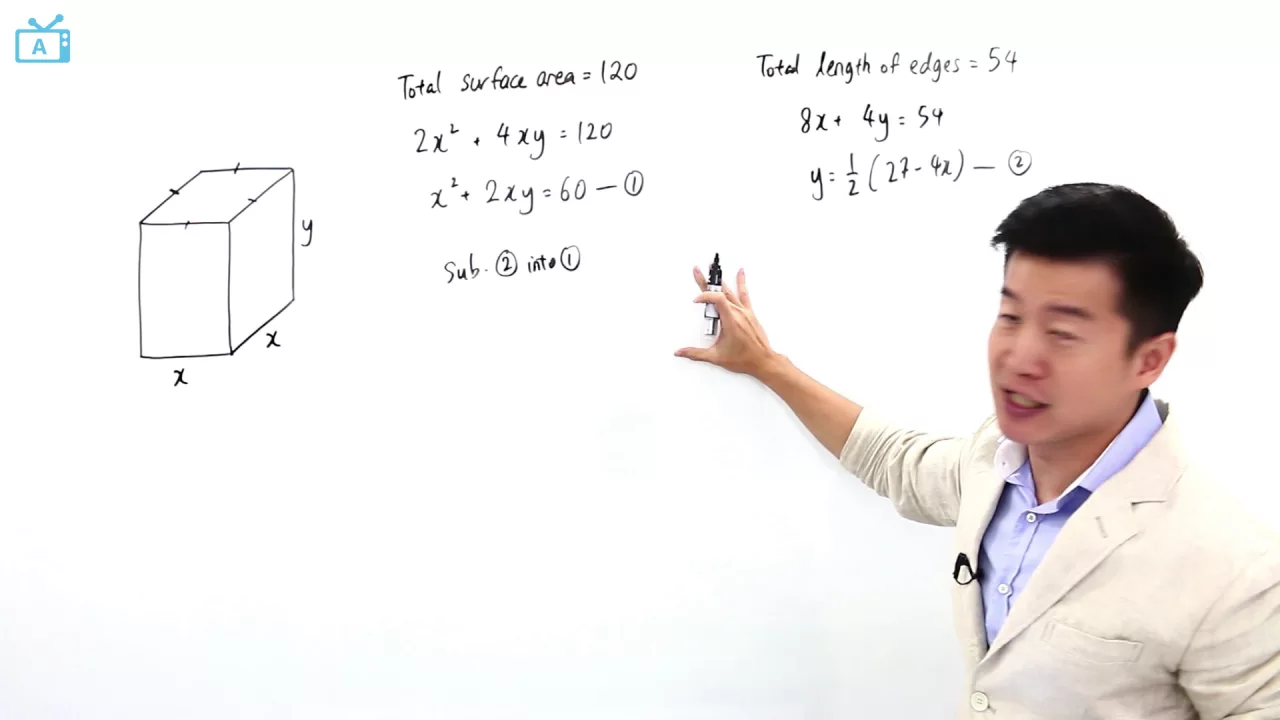 A
Total surface area = 120
2x² + 4xy = 120
x² + 2xy = 60 — ①
Sub. ② into ①
Total length of edges = 54
8x + 4y = 54
y = 1/2 (27 - 4x) — ②
y
x
x